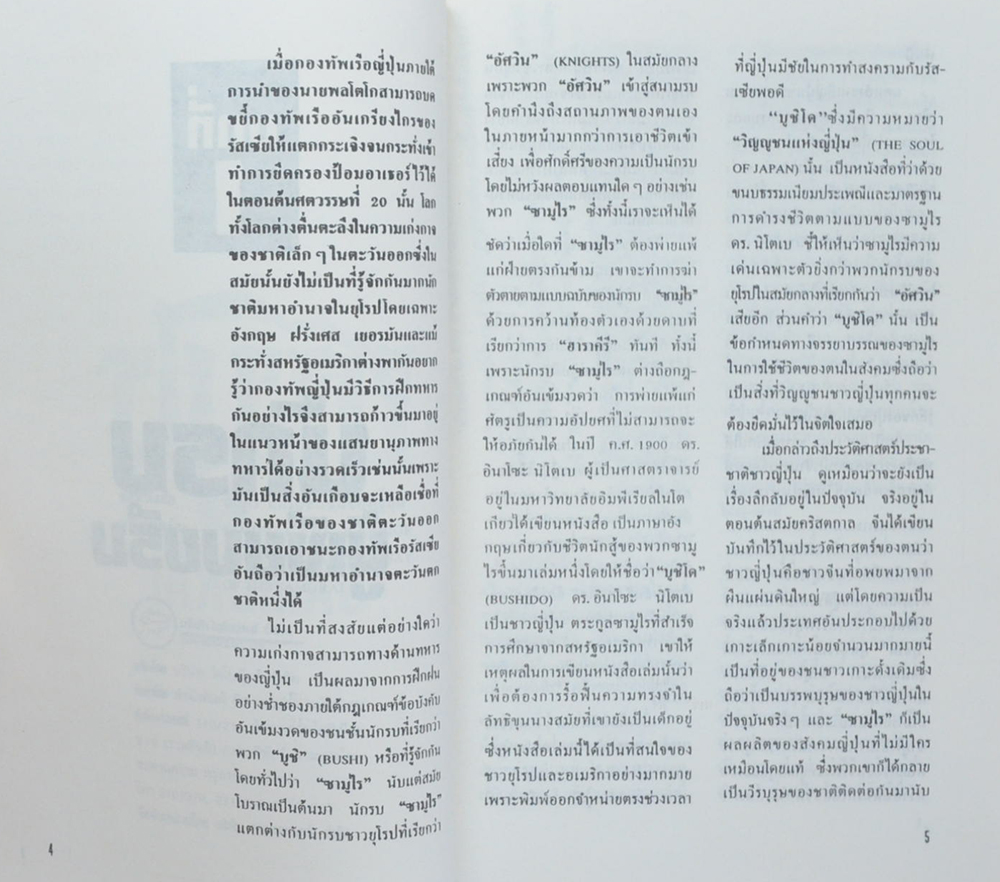 เมื่อกองทัพเรือญี่ปุ่นภายใต้
การนำของนายพลโตโกสามารถบด
ขยี้กองทัพเรืออันเกรียงไกรของ
รัสเซียให้แตกกระเจิงจนกระทั่งเข้า
ทำการยึดครองป้อมอาเธอร์ไว้ได้
ในตอนต้นศตวรรษที่ 20 นั้น โลก
ทั้งโลกต่างตื่นตะลึงในความเก่งกาจ
ของชาติเล็ก ๆ ในตะวันออกซึ่งใน
สมัยนั้นยังไม่เป็นที่รู้จักกันมากนัก
ชาติมหาอำนาจในยุโรปโดยเฉพาะ
อังกฤษ ฝรั่งเศส เยอรมันและแม้
กระทั่งสหรัฐอเมริกาต่างพากันอยาก
รู้ว่ากองทัพญี่ปุ่นมีวิธีการฝึกทหาร
กันอย่างไรจึงสามารถก้าวขึ้นมาอยู่
ในแนวหน้าของแสนยานุภาพทาง
ทหารได้อย่างรวดเร็วเช่นนั้นเพราะ
มันเป็นสิ่งอันเกือบจะเหลือเชื่อที่
กองทัพเรือของชาติตะวันออก
สามารถเอาชนะกองทัพเรือรัสเซีย
อันถือว่าเป็นมหาอำนาจตะวันตก
ชาติหนึ่งได้
ไม่เป็นที่สงสัยแต่อย่างใดว่า
ความเก่งกาจสามารถทางด้านทหาร
ของญี่ปุ่น เป็นผลมาจากการฝึกฝน
อย่างช่ำชองภายใต้กฎเกณฑ์ข้อบังคับ
อันเข้มงวดของชนชั้นนักรบที่เรียกว่า
พวก “บูชิ” (BUSHI) หรือที่รู้จักกัน
โดยทั่วไปว่า “ซามูไร” นับแต่สมัย
โบราณเป็นต้นมา นักรบ “ซามูไร”
แตกต่างกับนักรบชาวยุโรปที่เรียกว่า
4
“อัศวิน” (KNIGHTS) ในสมัยกลาง
เพราะพวก “อัศวิน” เข้าสู่สนามรบ
โดยคำนึงถึงสถานภาพของตนเอง
ในภายหน้ามากกว่าการเอาชีวิตเข้า
เสี่ยง เพื่อศักดิ์ศรีของความเป็นนักรบ
โดยไม่หวังผลตอบแทนใด ๆ อย่างเช่น
พวก “ซามูไร” ซึ่งทั้งนี้เราจะเห็นได้
ชัดว่าเมื่อใดที่ “ซามูไร” ต้องพ่ายแพ้
แก่ฝ่ายตรงกันข้าม เขาจะทำการฆ่า
ตัวตายตามแบบฉบับของนักรบ “ซามูไร”
ด้วยการคว้านท้องตัวเองด้วยดาบที่
เรียกว่าการ “ฮาราคีรี” ทันที ทั้งนี้
เพราะนักรบ “ซามูไร” ต่างถือกฎ-
เกณฑ์อันเข้มงวดว่า การพ่ายแพ้แก่
ศัตรูเป็นความอัปยศที่ไม่สามารถจะ
ให้อภัยกันได้ ในปี ค.ศ. 1900 ดร.
อินาโซะ นิโตเบ ผู้เป็นศาสตราจารย์
อยู่ในมหาวิทยาลัยอิมพีเรียลในโต
เกียวได้เขียนหนังสือ เป็นภาษาอัง
กฤษเกี่ยวกับชีวิตนักสู้ของพวกซามู
ไรขึ้นมาเล่มหนึ่งโดยให้ชื่อว่า“บูชิโด”
(BUSHIDO) ดร. อินาโซะ นิโตเบ
เป็นชาวญี่ปุ่น ตระกูลซามูไรที่สำเร็จ
การศึกษาจากสหรัฐอเมริกา เขาให้
เหตุผลในการเขียนหนังสือเล่มนั้นว่า
เพื่อต้องการรื้อฟื้นความทรงจำใน
ลัทธิขุนนางสมัยที่เขายังเป็นเด็กอยู่
ซึ่งหนังสือเล่มนี้ได้เป็นที่สนใจของ
ชาวยุโรปและอเมริกาอย่างมากมาย
เพราะพิมพ์ออกจำหน่ายตรงช่วงเวลา
ที่ญี่ปุ่นมีชัยในการทำสงครามกับรัส-
เซียพอดี
“บูชิโด”ซึ่งมีความหมายว่า
“วิญญูชนแห่งญี่ปุ่น” (THE SOUL
OF JAPAN) นั้น เป็นหนังสือที่ว่าด้วย
ขนบธรรมเนียมประเพณีและมาตรฐาน
การดำรงชีวิตตามแบบของซามูไร
ดร. นิโตเบ ชี้ให้เห็นว่าซามูไรมีความ
เด่นเฉพาะตัวยิ่งกว่าพวกนักรบของ
ยุโรปในสมัยกลางที่เรียกกันว่า “อัศวิน”
เสียอีก ส่วนคำว่า “บูชิโด” นั้น เป็น
ข้อกำหนดทางจรรยาบรรณของซามูไร
ในการใช้ชีวิตของตนในสังคมซึ่งถือว่า
เป็นสิ่งที่วิญญูชนชาวญี่ปุ่นทุกคนจะ
ต้องยึดมั่นไว้ในจิตใจเสมอ
เมื่อกล่าวถึงประวัติศาสตร์ประชา-
ชาติชาวญี่ปุ่น ดูเหมือนว่าจะยังเป็น
เรื่องลึกลับอยู่ในปัจจุบัน จริงอยู่ใน
ตอนต้นสมัยคริสตกาล จีนได้เขียน
บันทึกไว้ในประวัติศาสตร์ของตนว่า
ชาวญี่ปุ่นคือชาวจีนที่อพยพมาจาก
ผืนแผ่นดินใหญ่ แต่โดยความเป็น
จริงแล้วประเทศอันประกอบไปด้วย
เกาะเล็กเกาะน้อยจำนวนมากมายนี้
เป็นที่อยู่ของชนชาวเกาะดั้งเดิมซึ่ง
ถือว่าเป็นบรรพบุรุษของชาวญี่ปุ่นใน
ปัจจุบันจริง ๆ และ “ซามูไร” ก็เป็น
ผลผลิตของสังคมญี่ปุ่นที่ไม่มีใคร
เหมือนโดยแท้ ซึ่งพวกเขาก็ได้กลาย
เป็นวีรบุรุษของชาติติดต่อกันมานับ
5